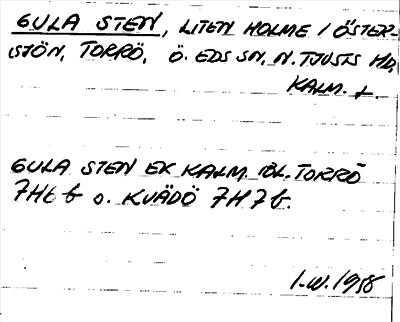 GULA STEN, LITEN HOLME I ÖSTER-
SJÖN, TORRÖ, Ö. EDS SN, N. TJUSTS HD,
KALM. L.
GULA STEN EK KALM. TORRÖ
7H6b o. KVÄDÖ 7H7b.
I.W. 1958